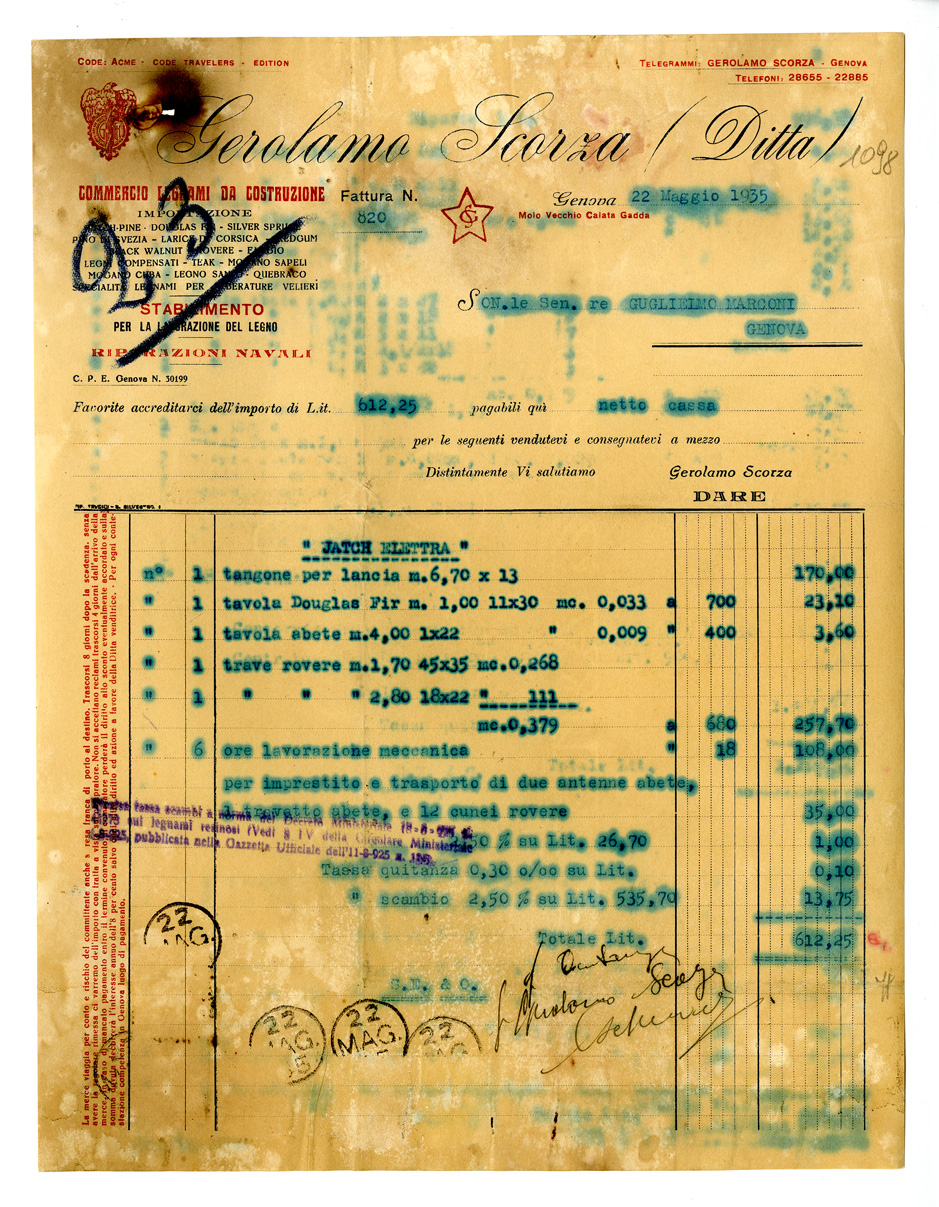 CODE: ACME - CODE TRAVELERS - EDITION
TELEGRAMMI: GEROLAMO SCORZA - GENOVA
TELEFONI: 28655 - 22885
Gerolamo Scorza (Ditta)
1098
COMMERCIO LEGNAMI DA COSTRUZIONE
Fattura N.
820
Genova 22 Maggio 1935
Molo Vecchio Calata Gadda
SG
23
IMPORTAZIONE
PITCH-PINE - DOUGLAS FIR - SILVER SPRUCE
PINO DI SVEZIA - LARICE DI CORSICA - REDGUM
BLACK WALNUT - ROVERE -
LEGNI COMPENSATI - TEAK - MOGANO SAPELI
MOGANO CUBA - LEGNO SANTO - QUEBRACO
SPECIALITÀ LEGNAMI PER ALBERATURE VELIERI
STABILIMENTO
PER LA LAVORAZIONE DEL LEGNO
RIPARAZIONI NAVALI
S ON.le Sen. re GUGLIELMO MARCONI
GENOVA
C. P. E. Genova N. 30199
Favorite accreditarci dell'importo di L.it. 612,25 pagabili quì netto cassa
per le seguenti vendutevi e consegnatevi a mezzo
Distintamente Vi salutiamo Gerolamo Scorza
DARE
" JATCH ELETTRA "
n° 1 tangone per lancia m.6,70 x 13 170,00
" 1 tavola Douglas Fir m. 1,00 11x30 mc. 0,033 a 700 23,10
" 1 tavola abete m.4,00 1x22 " 0,009 " 400 3,60
" 1 trave rovere m.1,70 45x35 mc.0,268
" 1 " " " 2,80 18x22 " 111
mc.0,379 a 680 257,70
" 6 ore lavorazione meccanica " 18 108,00
per imprestito e trasporto di due antenne abete,
abete, e 12 cunei rovere 35,00
% su Lit. 26,70 1,00
Tassa quitanza 0,30 o/oo su Lit. 0,10
" scambio 2,50 % su Lit. 535,70 13,75
Totale Lit. 612,25
S.E. & O.
tassa scambi a norma del Decreto Ministeriale
sui legnami resinosi (Vedi § IV della Circolare Ministeriale
pubblicata nella Gazzetta Ufficiale dell'11-8-925 n.
22
MAG.
22
MAG.
22
MAG.
22
MAG.
Gerolamo Scorza
La merce viaggia per conto e rischio del committente anche se resa franca di porto al destino. Trascorsi 8 giorni dopo la scadenza, senza
avere la rimessa ci varremo dell'importo con tratta a vista Non si accettano reclami trascorsi 4 giorni dall'arrivo della
merce. In caso di mancato pagamento entro il termine convenuto, perderà il diritto allo sconto eventualmente accordato e sulla
somma dovuta decorrerà l'interesse annuo dell'8 per cento salvo diritto ed azione a favore della Ditta venditrice. - Per ogni conte-
stazione competenza in Genova luogo di pagamento.